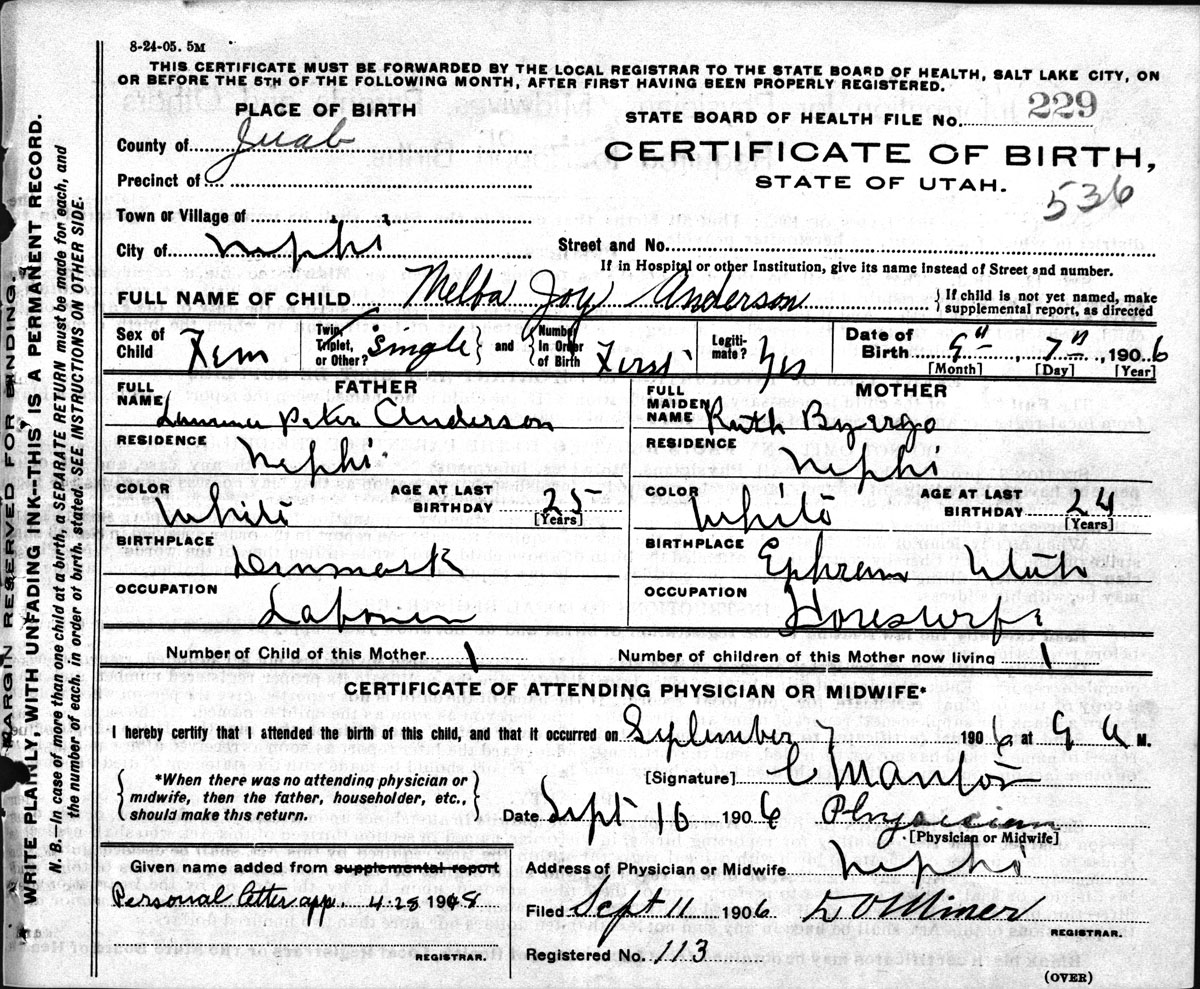 8-24-05. 5M
THIS CERTIFICATE MUST BE FORWARDED BY THE LOCAL REGISTRAR TO THE STATE BOARD OF HEALTH, SALT LAKE CITY, ON
OR BEFORE THE 5TH OF THE FOLLOWING MONTH, AFTER FIRST HAVING BEEN PROPERLY REGISTERED.
PLACE OF BIRTH
STATE BOARD OF HEALTH FILE No. 229
County of Juab
CERTIFICATE OF BIRTH,
STATE OF UTAH.
536
Precinct of
Town or Village of
City of Nephi
Street and No.
If in Hospital or other Institution, give its name instead of Street and number.
FULL NAME OF CHILD Melba Joy Anderson {If child is not yet named, make supplemental report, as directed
Sex of Child Fem Twin, Triplet, or Other? Single } and { Number In Order of Birth First Legitimate? Yes Date of Birth 9th, 7th, 1906
[Month] [Day] [Year]
FATHER MOTHER
FULL NAME Peter Anderson FULL MAIDEN NAME Ruth
RESIDENCE Nephi RESIDENCE Nephi
COLOR White AGE AT LAST BIRTHDAY 25 [Years] COLOR White AGE AT LAST BIRTHDAY 24 [Years]
BIRTHPLACE Denmark BIRTHPLACE Ephraim Utah
OCCUPATION Laborer OCCUPATION Housewife
Number of Child of this Mother 1 Number of children of this Mother now living 1
CERTIFICATE OF ATTENDING PHYSICIAN OR MIDWIFE*
I hereby certify that I attended the birth of this child, and that it occurred on September 7 1906 at 9 A M.
{*When there was no attending physician or midwife, then the father, householder, etc., should make this return.}
[Signature]
Date Sept 16 1906 Physician
[Physician or Midwife]
Given name added from supplemental report
Address of Physician or Midwife Nephi
Personal letter app. 4-28 1948
Filed Sept 11 1906 Miner
REGISTRAR.
REGISTRAR.
Registered No. 113
(OVER)
MARGIN RESERVED FOR BINDING.
WRITE PLAINLY, WITH UNFADING INK--THIS IS A PERMANENT RECORD.
N. B.—In case of more than one child at a birth, a SEPARATE RETURN must be made for each, and
the number of each, in order of birth, stated. SEE INSTRUCTIONS ON OTHER SIDE.